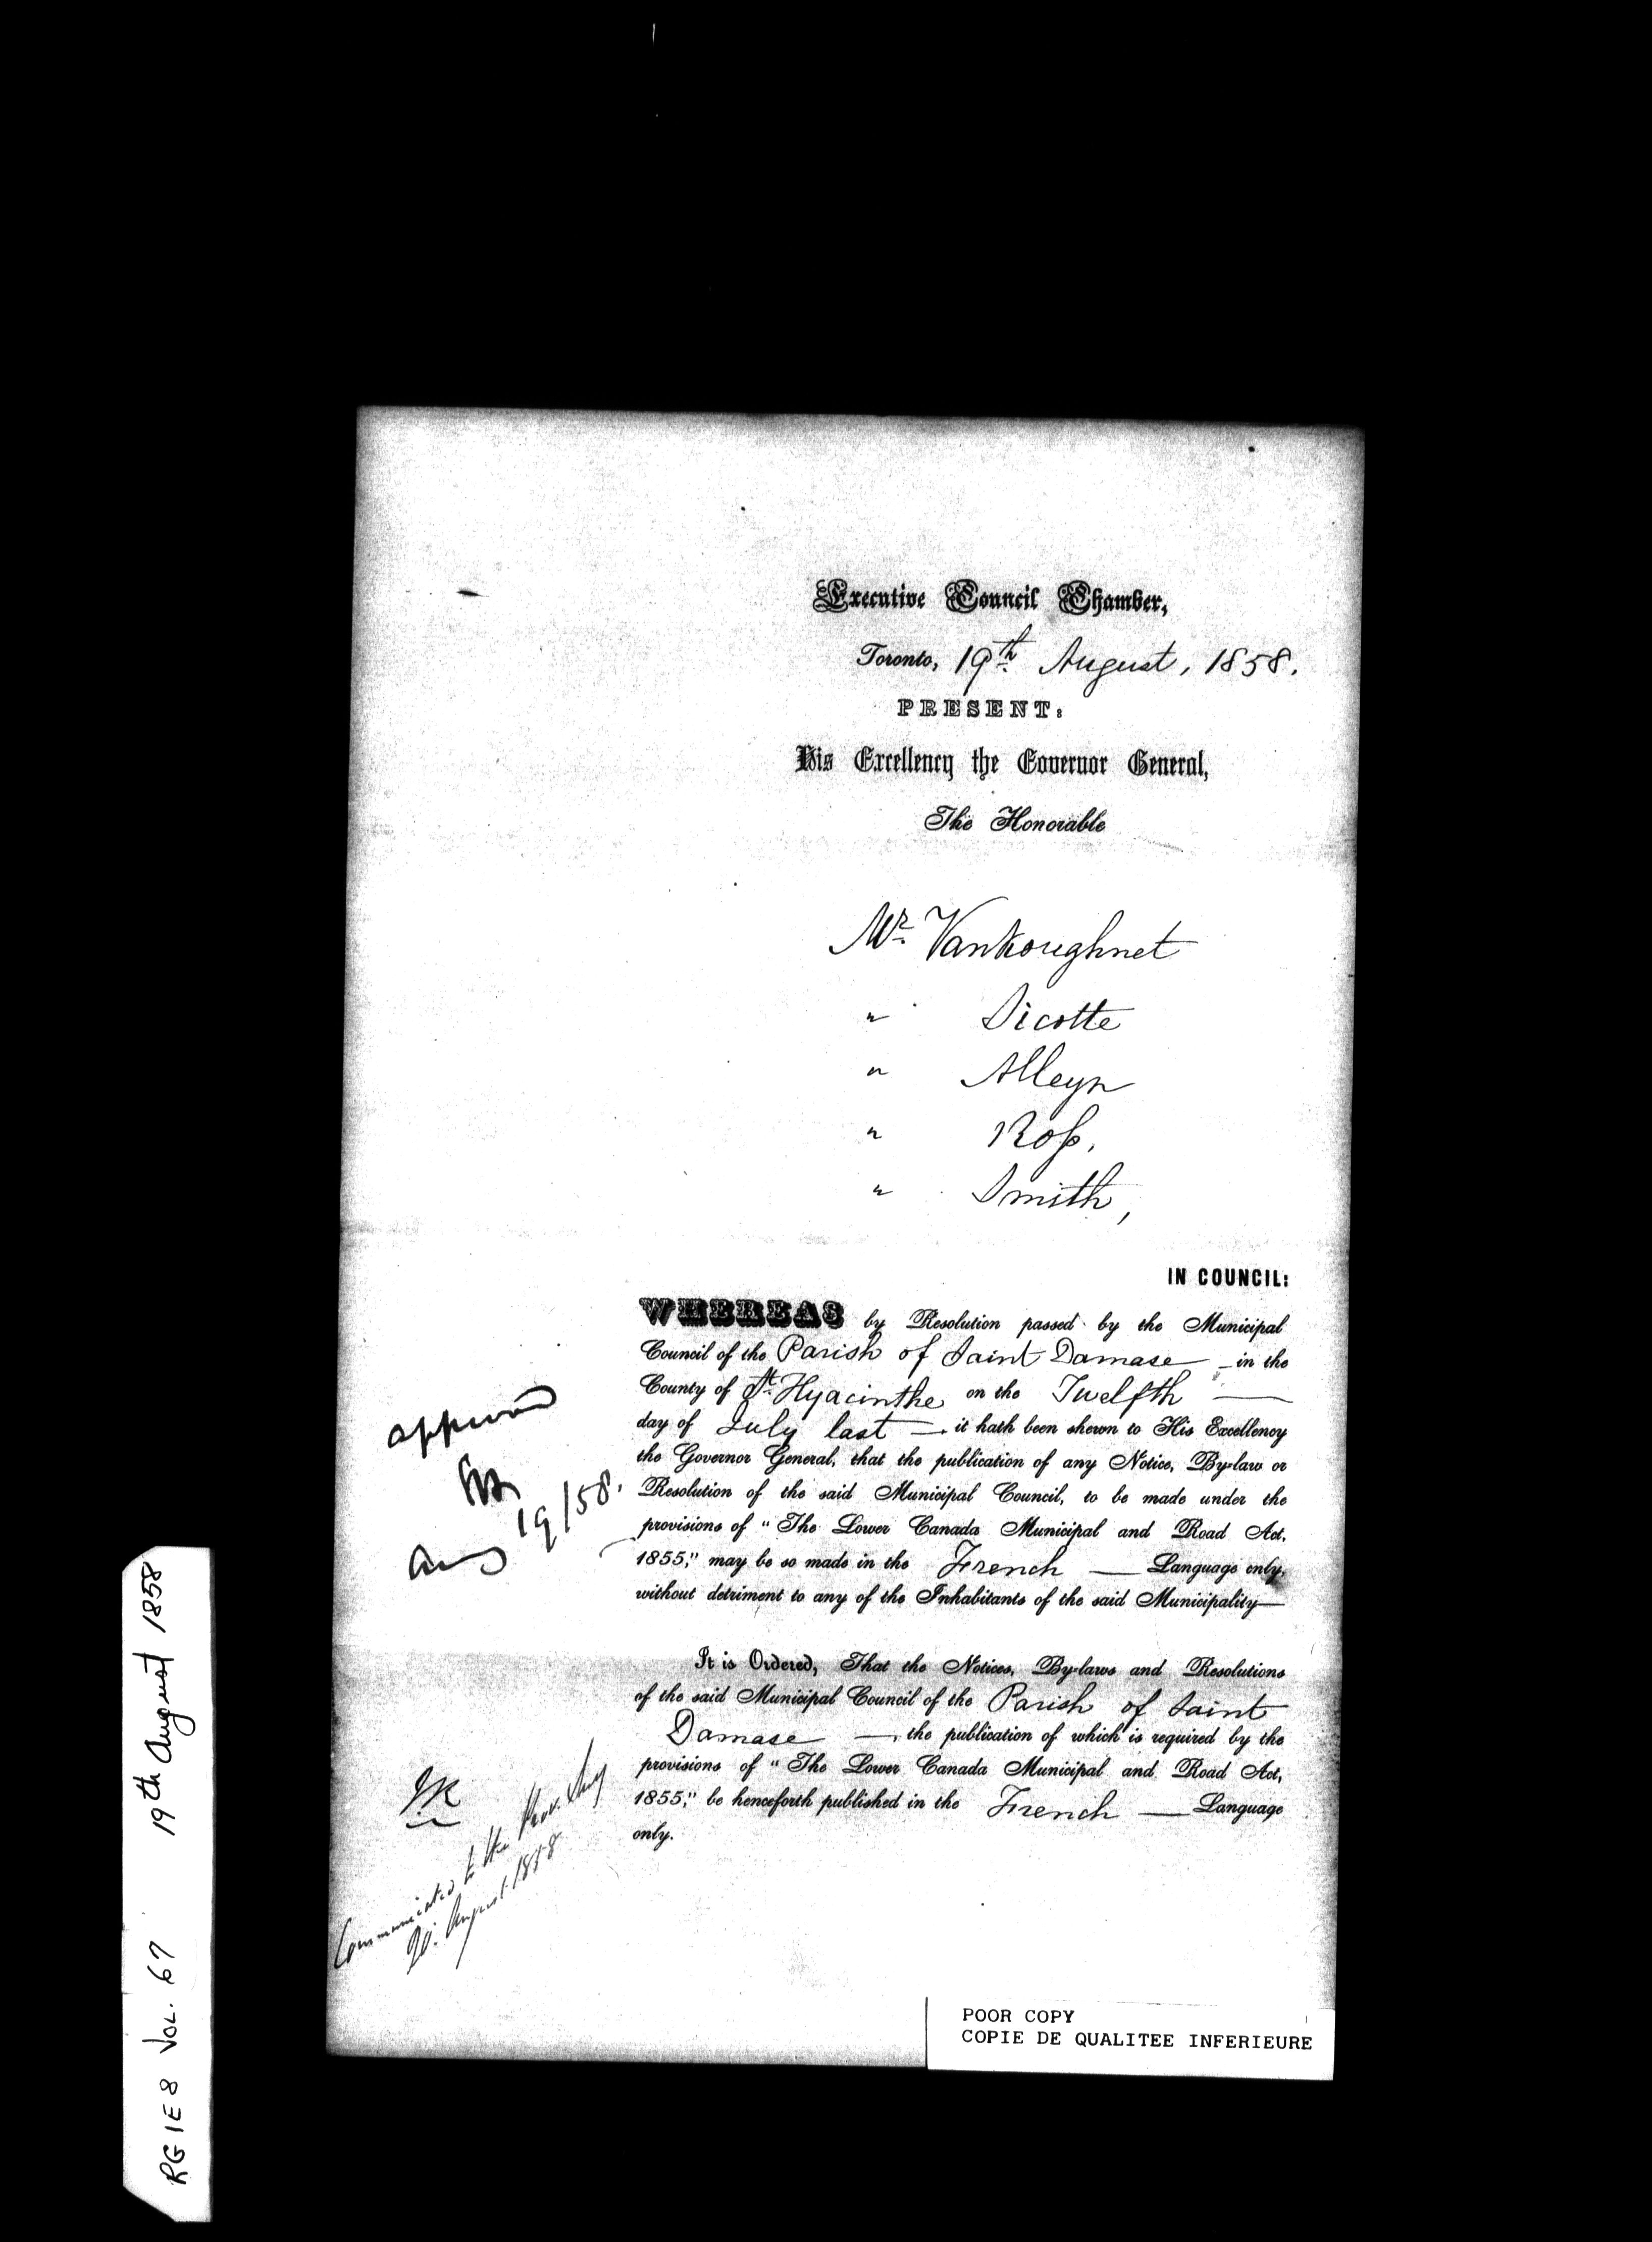 Executive Council Chamber,
Toronto, 19th August, 1858.
PRESENT:
His Excellency the Governor General,
The Honorable
Mr. Vankoughnet
" Sicotte
" Alleyn
" Ross,
" Smith,
IN COUNCIL:
WHEREAS by Resolution passed by the Municipal
Council of the Parish of Saint Damase — in the
County of St. Hyacinthe on the Twelfth —
day of July last — it hath been shewn to His Excellency
the Governor General, that the publication of any Notice, By-law or
Resolution of the said Municipal Council, to be made under the
provisions of "The Lower Canada Municipal and Road Act,
1855," may be so made in the French — Language only,
without detriment to any of the Inhabitants of the said Municipality—
It is Ordered, That the Notices, By-laws and Resolutions
of the said Municipal Council of the Parish of Saint
Damase — the publication of which is required by the
provisions of "The Lower Canada Municipal and Road Act,
1855," be henceforth published in the French — Language
only.
approved
Aug 19/58.
Communicated to the Prov. Secy
20. August 1858
RG 1 E 8 VOL. 67 19th August 1858
POOR COPY
COPIE DE QUALITEE INFERIEURE